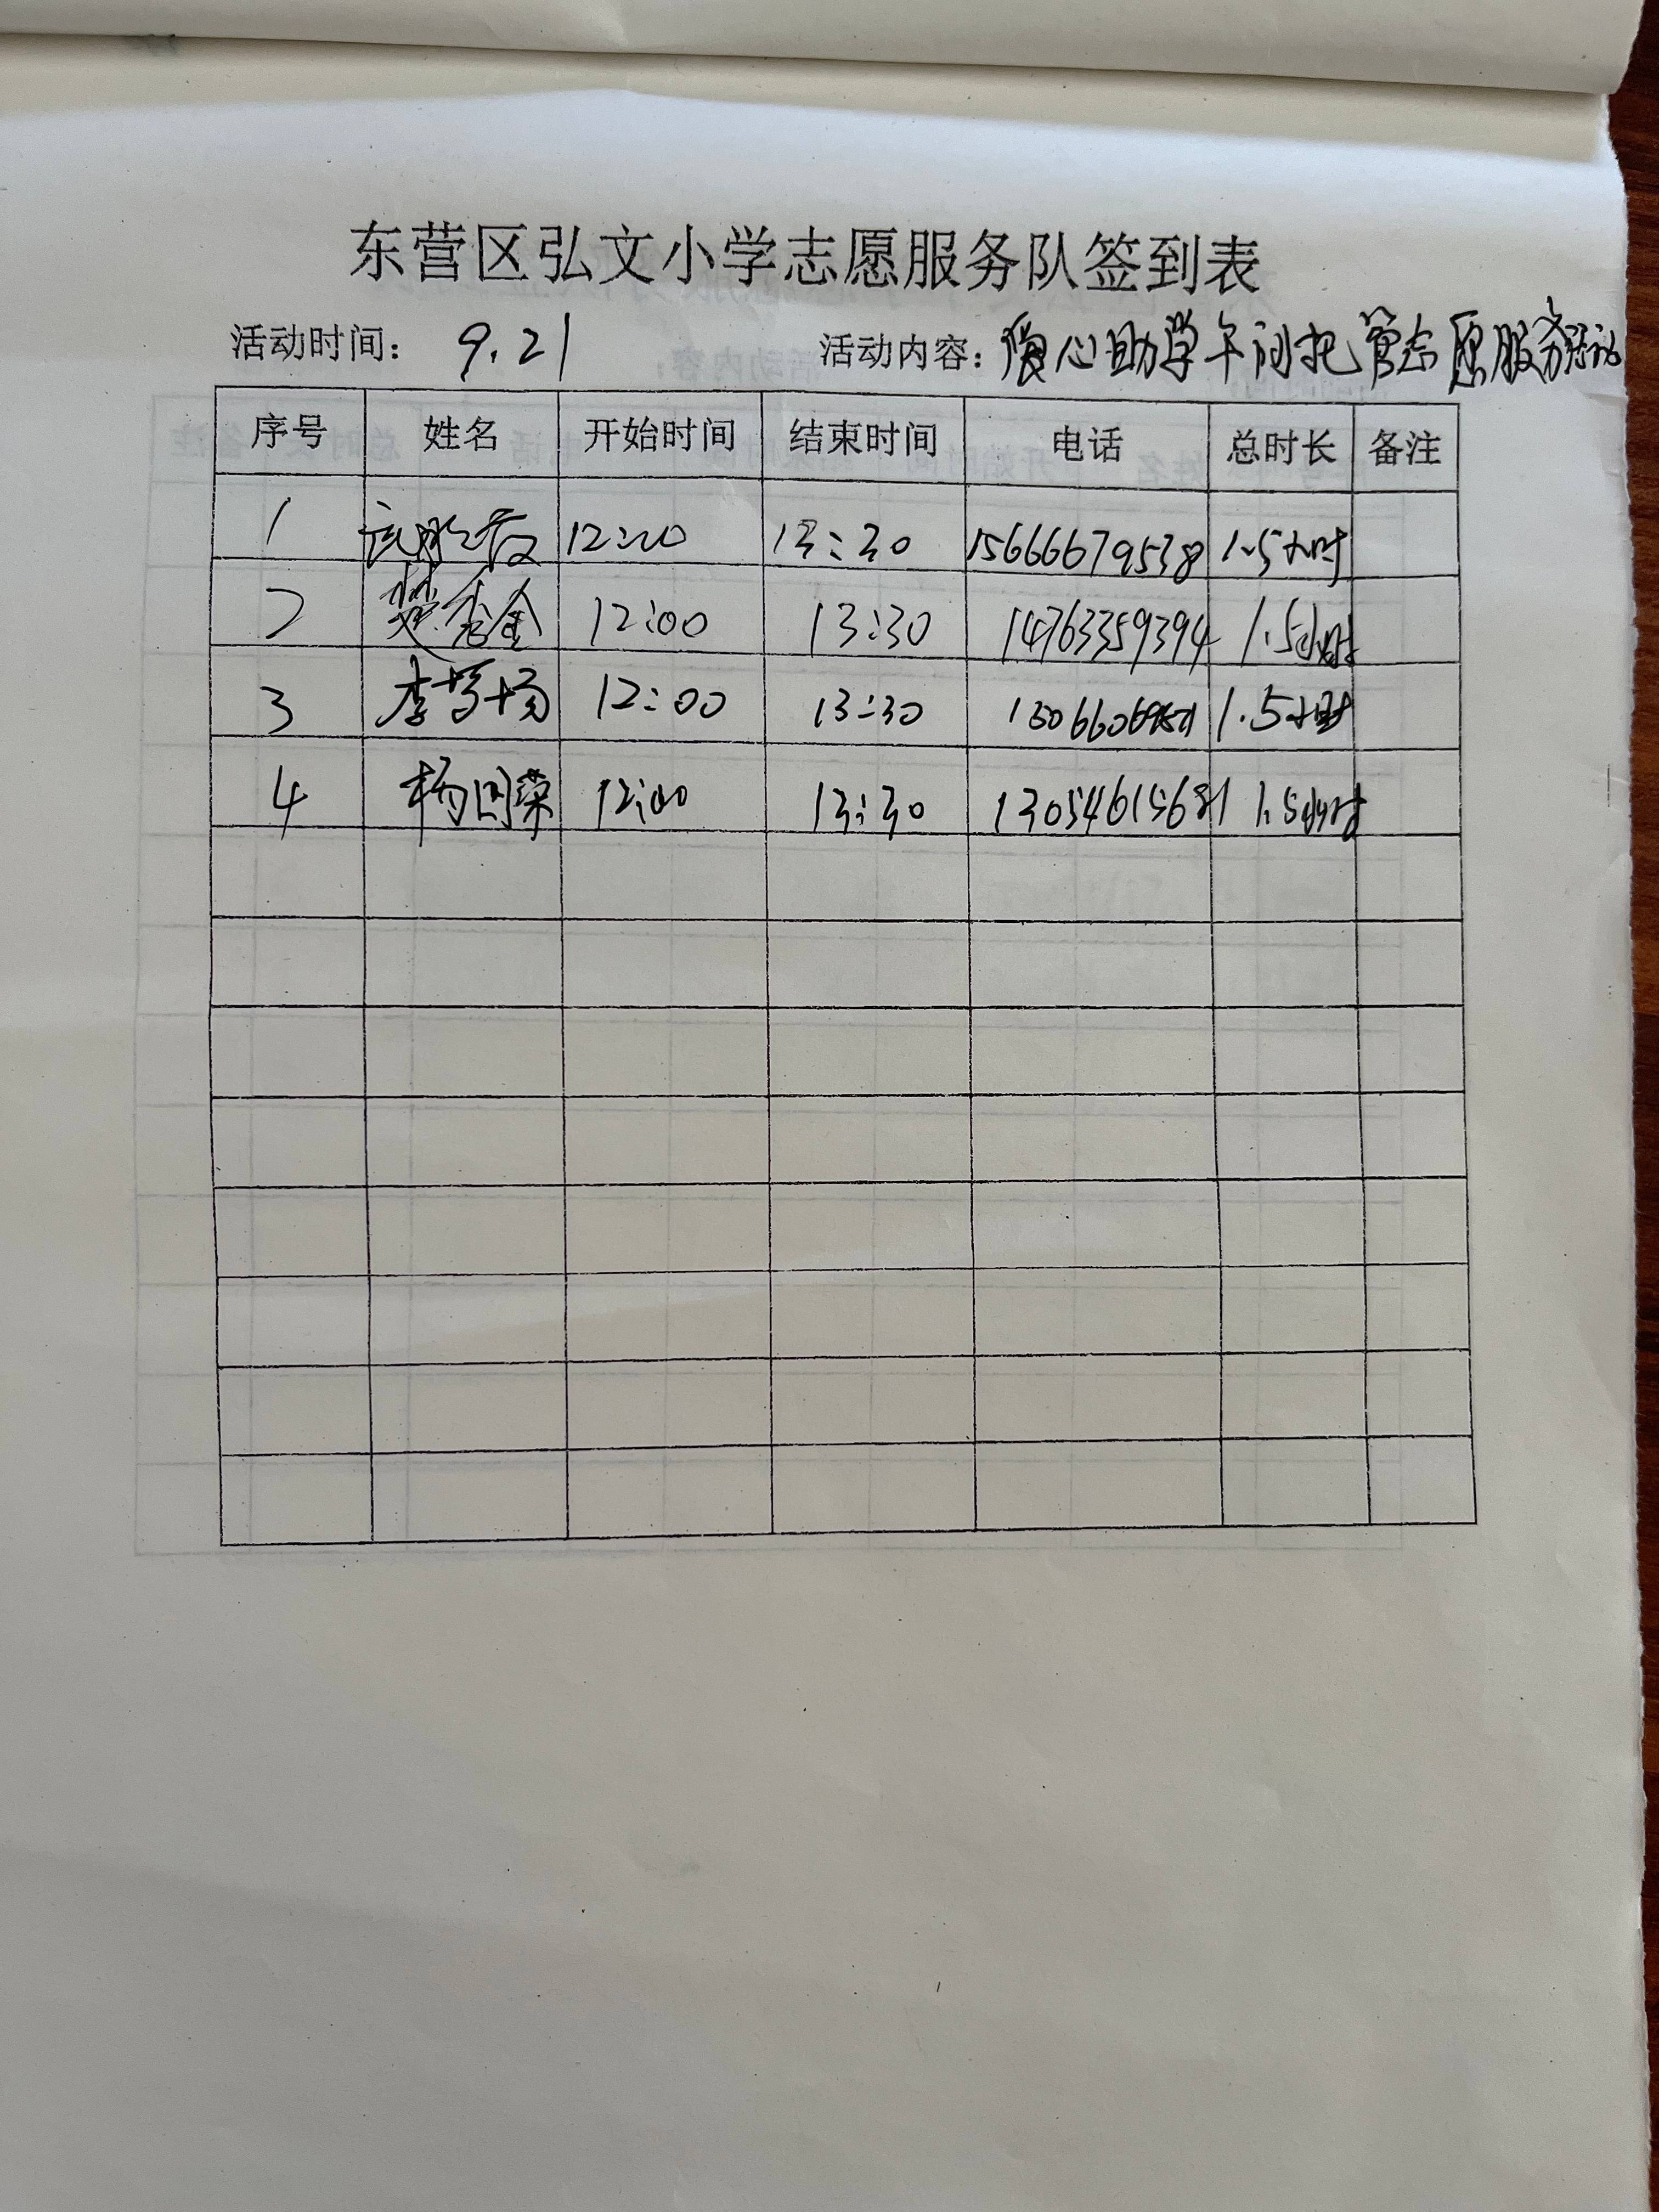 东营区弘文小学志愿服务队签到表
活动时间： 9.21 活动内容：爱心助学午间托管志愿服务活动
序号 姓名 开始时间 结束时间 电话 总时长 备注
1 12:00 13:30 15666679538 1.5小时
2 12:00 13:30 14763359394 1.5小时
3 李 12:00 13:30 1.5小时
4 杨国荣 12:00 13:30 13054615681 1.5小时